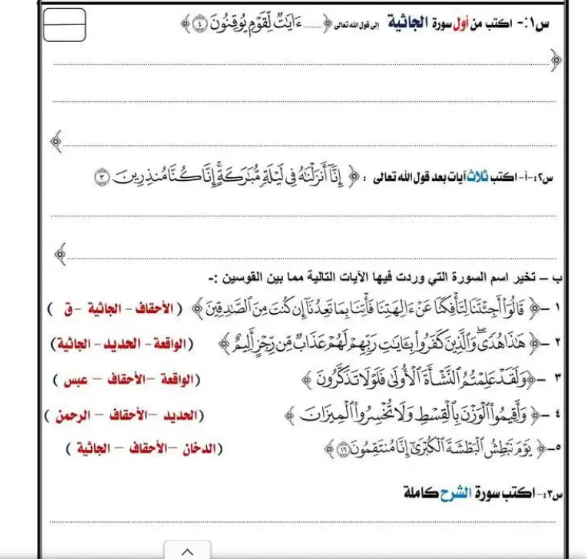 س١:- اكتب من أول سورة الجاثية إلى قول الله تعالى ﴿ ........ ءَايَٰتٞ لِّقَوۡمٖ يُوقِنُونَ ٤ ﴾
﴿
﴾
س٢:-أ- اكتب ثلاث آيات بعد قول الله تعالى : ﴿ إِنَّآ أَنزَلۡنَٰهُ فِي لَيۡلَةٖ مُّبَٰرَكَةٍۚ إِنَّا كُنَّا مُنذِرِينَ ٣
﴾
ب – تخير اسم السورة التي وردت فيها الآيات التالية مما بين القوسين :-
١ –﴿ قَالُوٓاْ أَجِئۡتَنَا لِتَأۡفِكَنَا عَنۡ ءَالِهَتِنَا فَأۡتِنَا بِمَا تَعِدُنَآ إِن كُنتَ مِنَ ٱلصَّٰدِقِينَ ﴾ ( الأحقاف – الجاثية –ق )
٢ –﴿ هَٰذَا هُدٗىۖ وَٱلَّذِينَ كَفَرُواْ بِـَٔايَٰتِ رَبِّهِمۡ لَهُمۡ عَذَابٞ مِّن رِّجۡزٍ أَلِيمٌ ﴾ (الواقعة – الحديد – الجاثية)
٣ –﴿وَلَقَدۡ عَلِمۡتُمُ ٱلنَّشۡأَةَ ٱلۡأُولَىٰ فَلَوۡلَا تَذَكَّرُونَ ﴾ (الواقعة –الأحقاف – عبس )
٤ –﴿ وَأَقِيمُواْ ٱلۡوَزۡنَ بِٱلۡقِسۡطِ وَلَا تُخۡسِرُواْ ٱلۡمِيزَانَ ﴾ (الحديد –الأحقاف – الرحمن )
٥–﴿ يَوۡمَ نَبۡطِشُ ٱلۡبَطۡشَةَ ٱلۡكُبۡرَىٰٓ إِنَّا مُنتَقِمُونَ ١٦ ﴾ (الدخان –الأحقاف – الجاثية )
س٣:- اكتب سورة الشرح كاملة